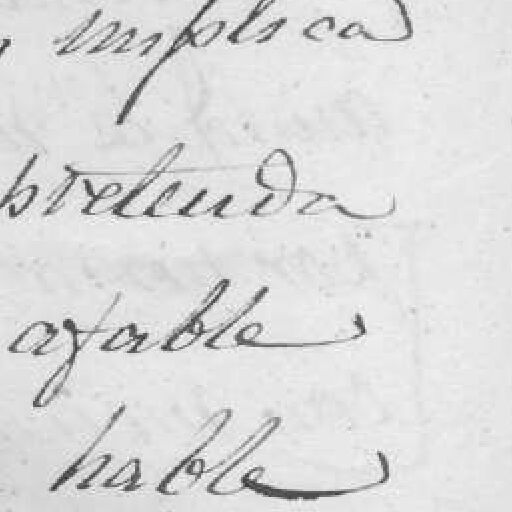 implica
pretenda
afable
hable